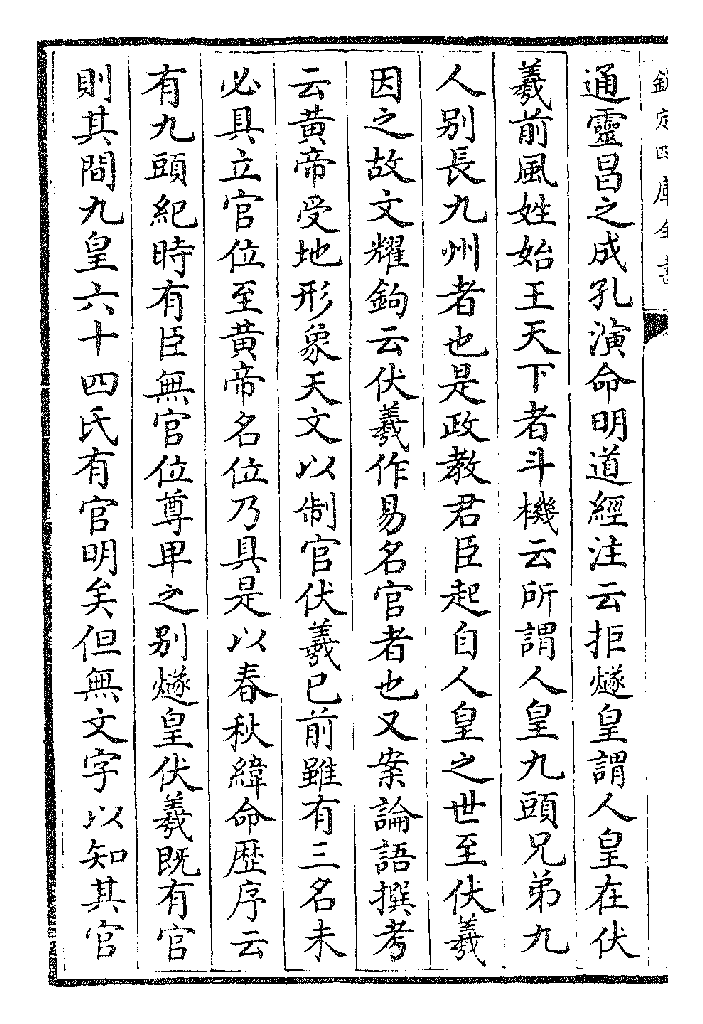 欽定四庫全書
通靈昌之成孔演命明道經注云拒燧皇謂人皇在伏
羲前風姓始王天下者斗機云所謂人皇九頭兄弟九
人别長九州者也是政教君臣起自人皇之世至伏羲
因之故文耀鉤云伏羲作易名官者也又案論語撰考
云黄帝受地形象天文以制官伏羲已前雖有三名未
必具立官位至黄帝名位乃具是以春秋緯命歴序云
有九頭紀時有臣無官位尊卑之别燧皇伏羲既有官
則其間九皇六十四氏有官明矣但無文字以知其官